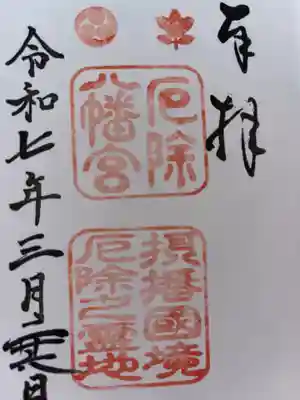 奉拝
厄除
八幡宮
摂播國境
厄除之霊地
令和七年三月 日